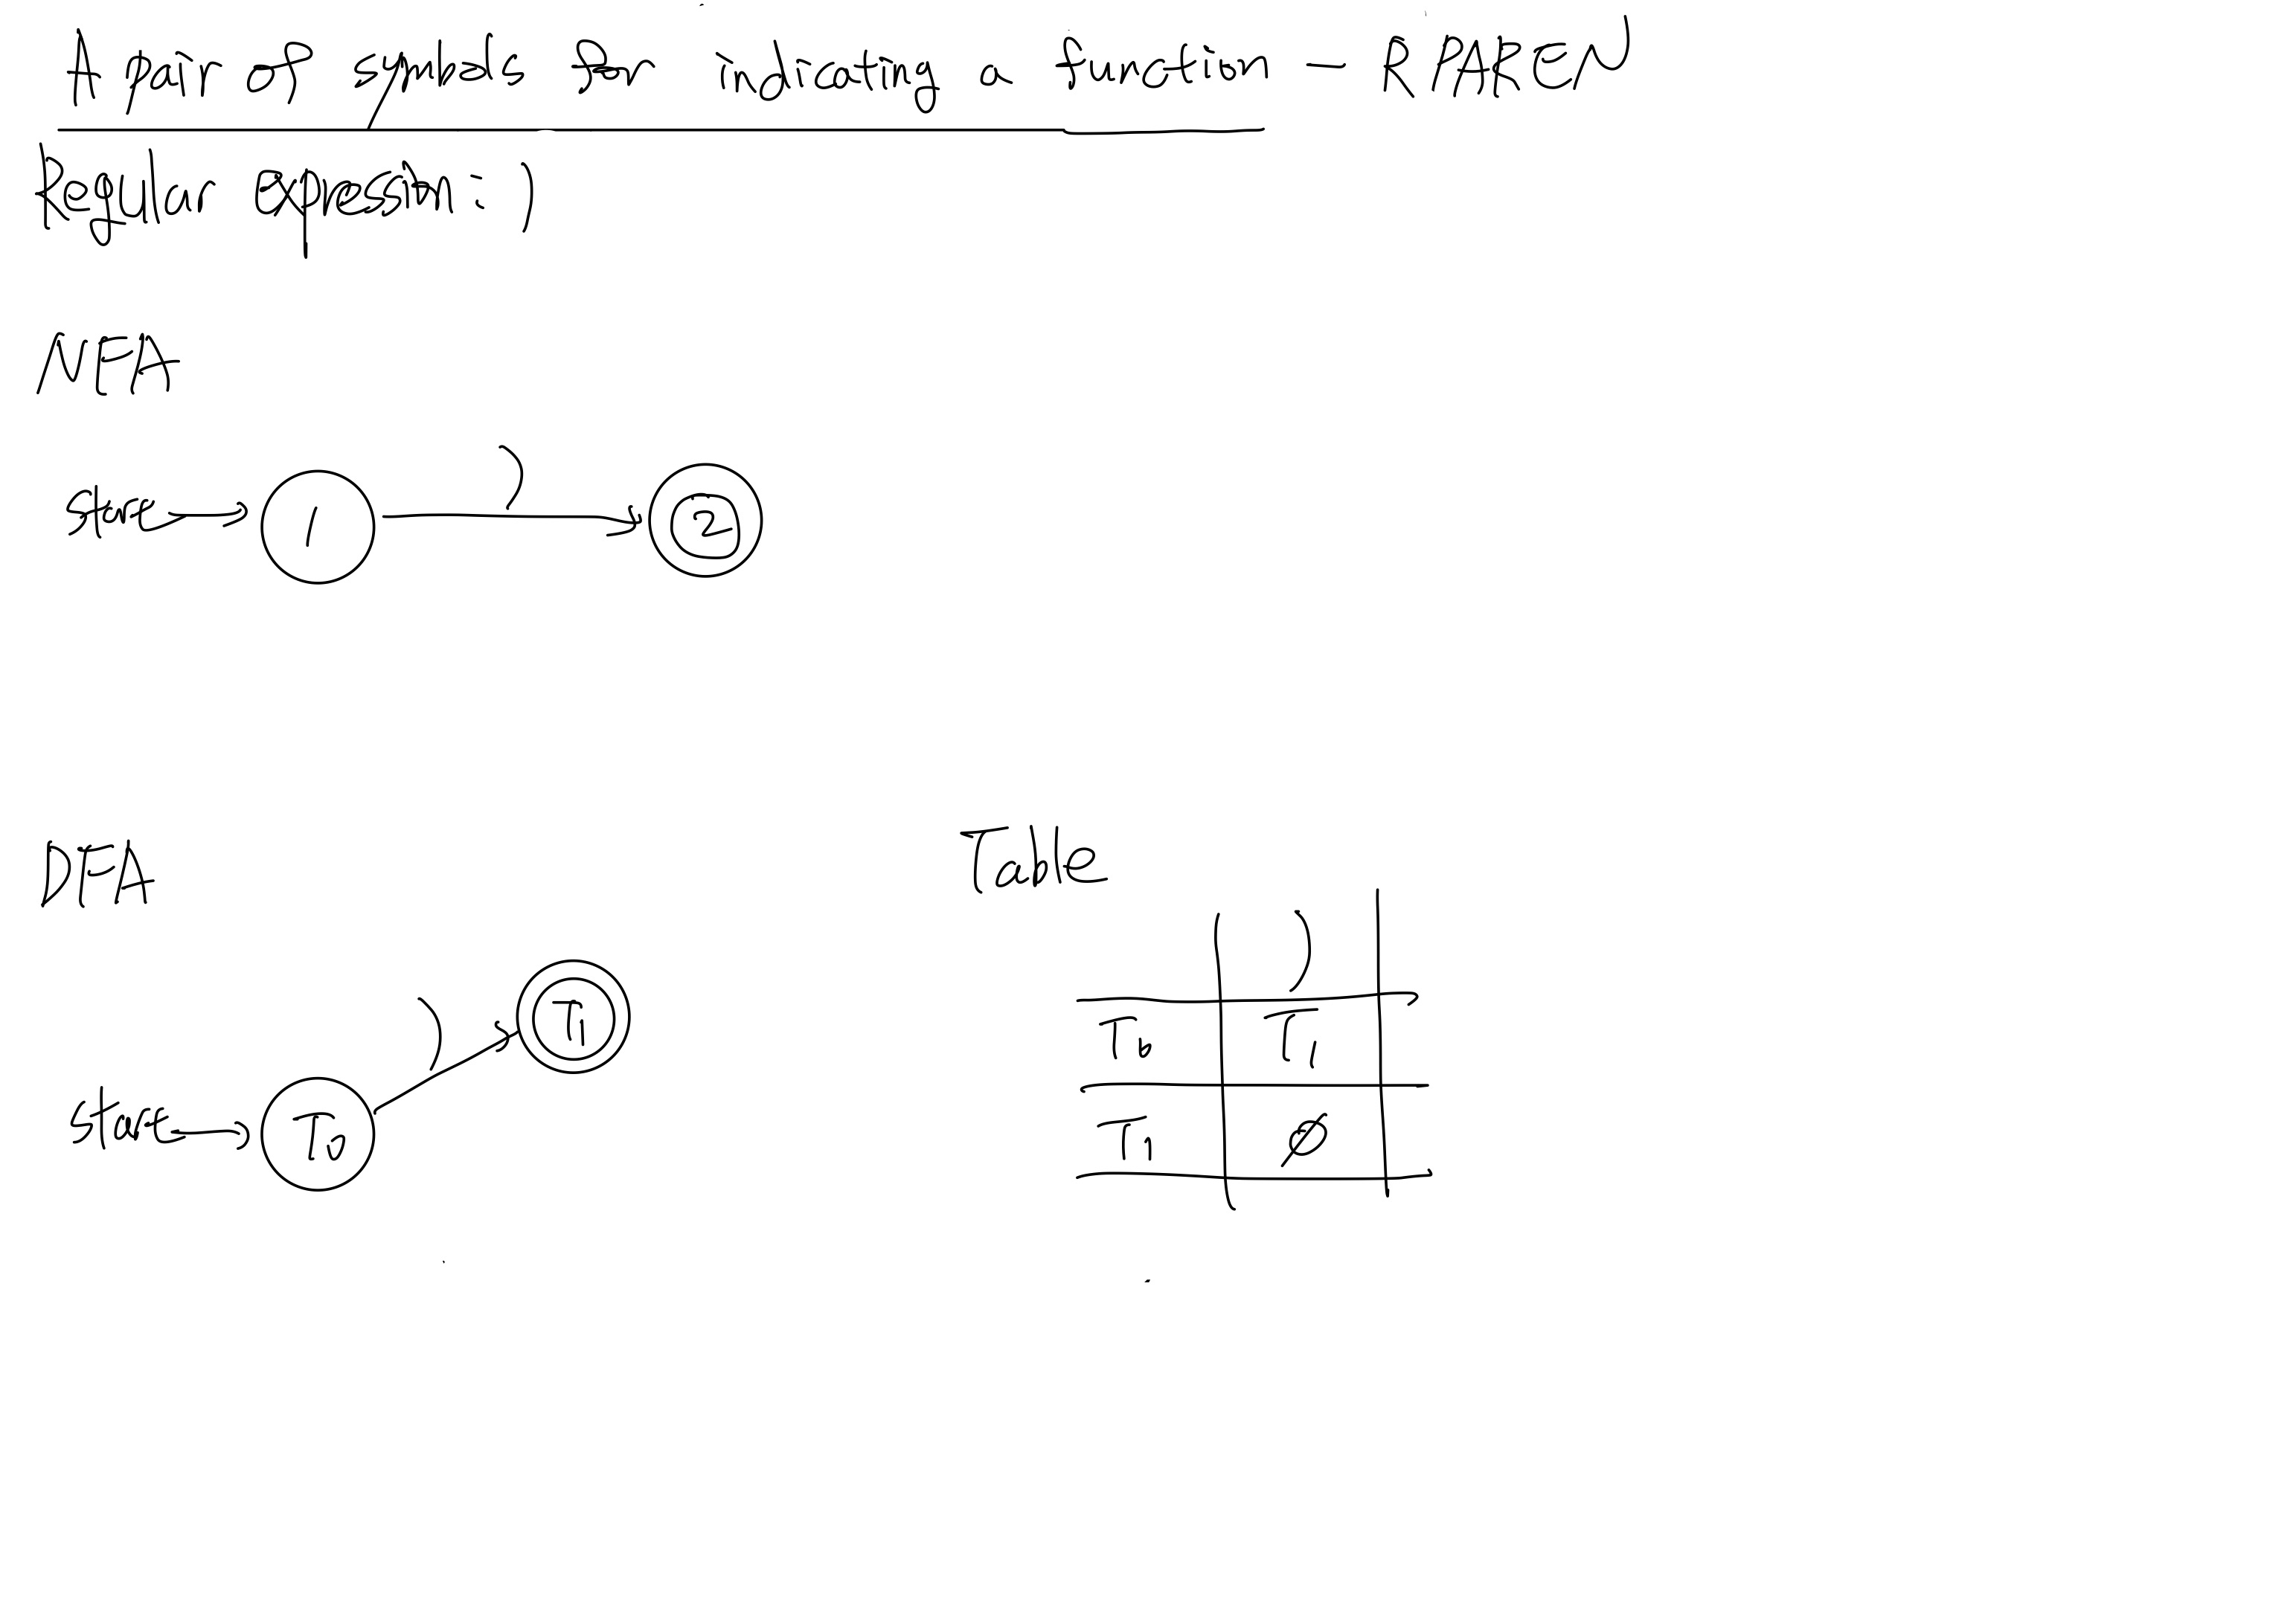 A pair of symbols for indicating a function - RPAREN
Regular expression: )
NFA
)
start 1 2
DFA
Table
)
T1
)
T0 T1
start T0
T1 ∅